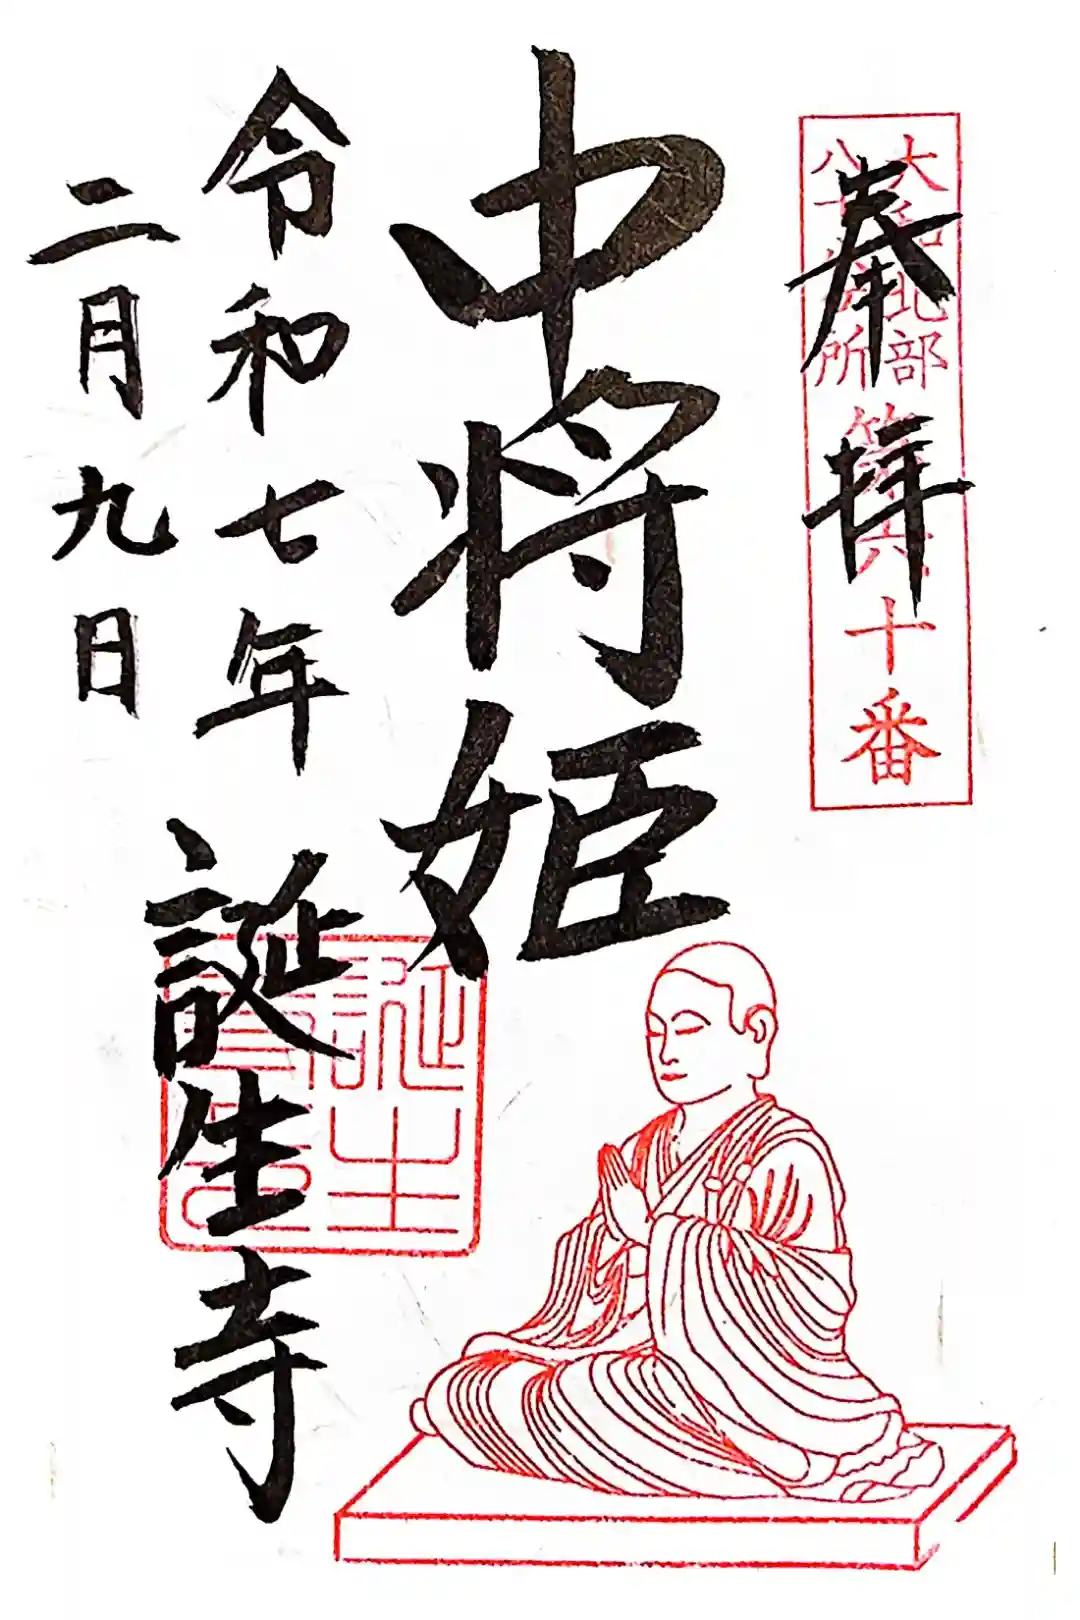 奉拝
大和北部
八十八ヶ所
第六十番
中将姫
令和七年
二月九日
誕生寺
誕生